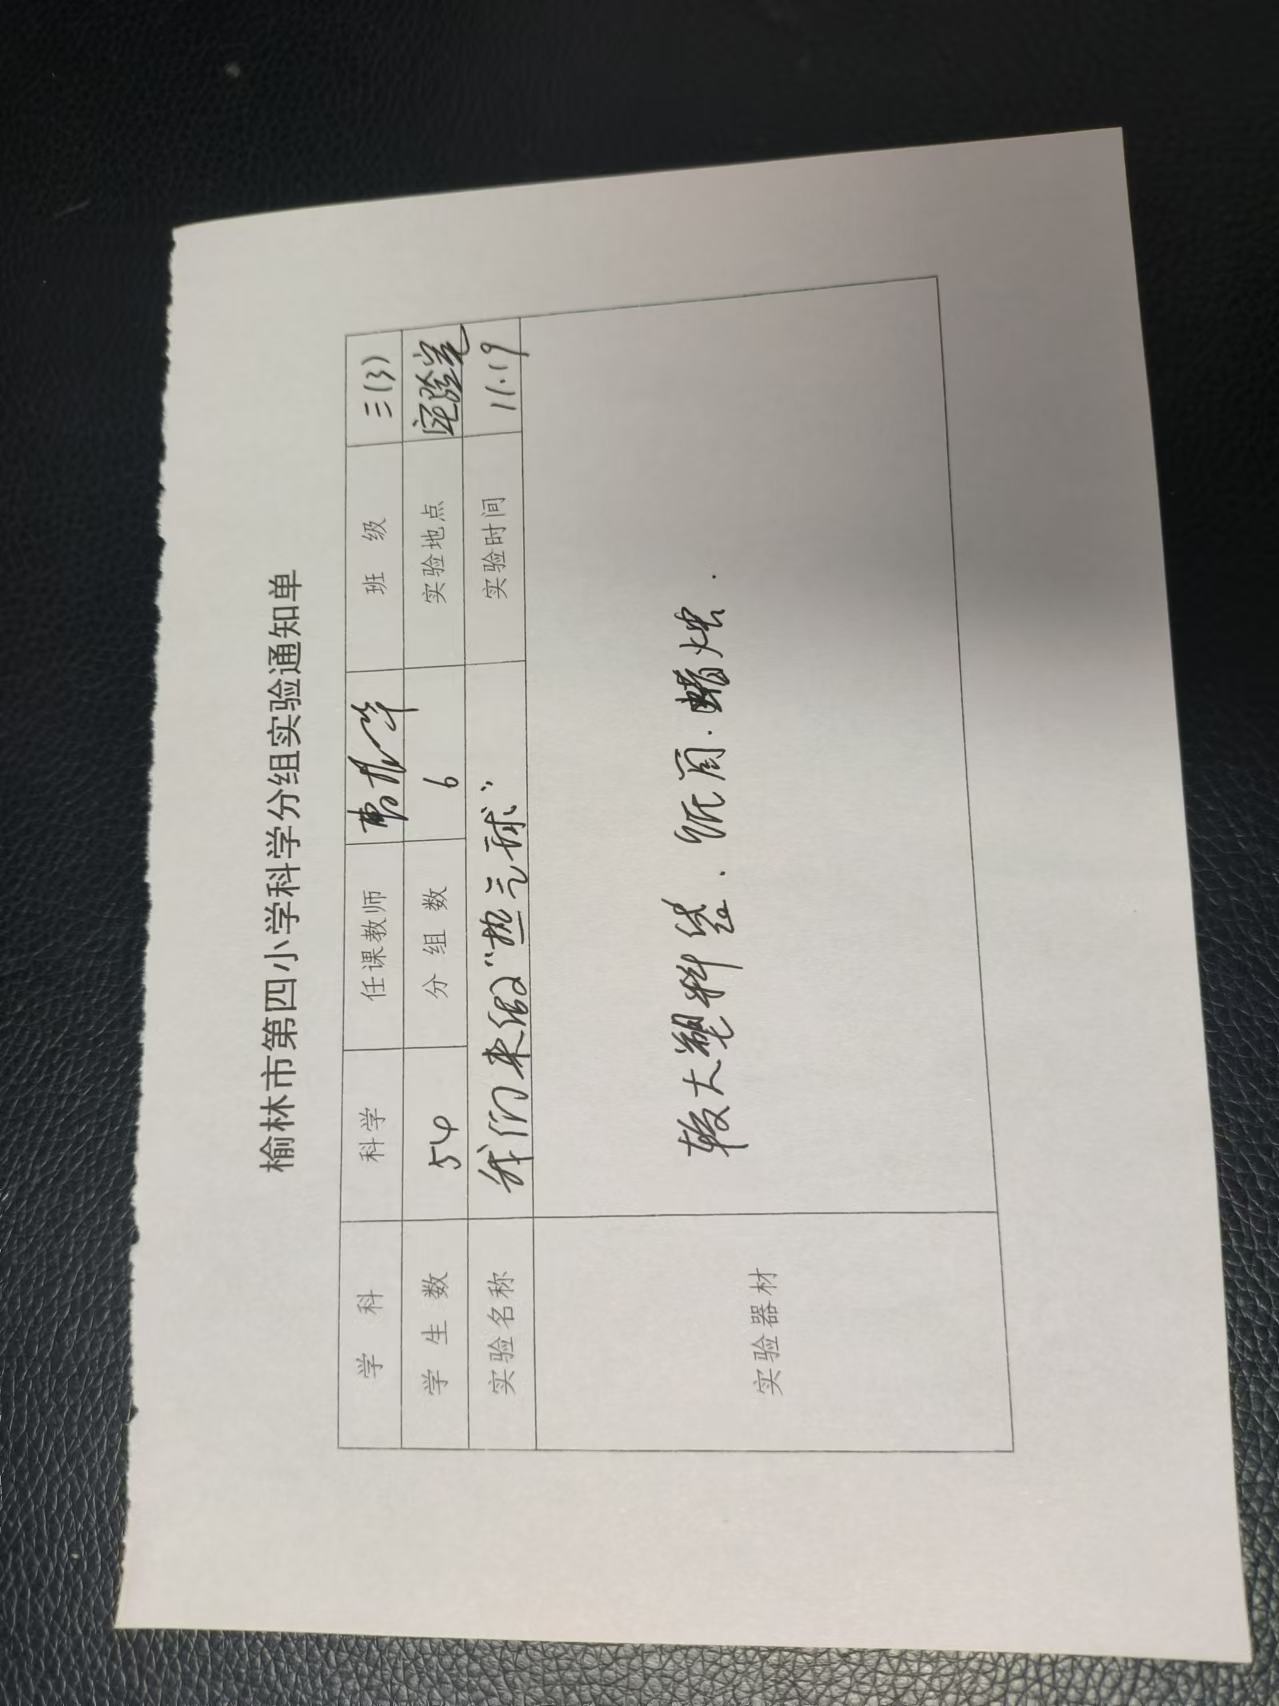 榆林市第四小学科学分组实验通知单
学 科 科学 任课教师 班 级 三(3)
学 生 数 54 分 组 数 6 实验地点 实验室
实验名称 我们来做“热气球” 实验时间 11.19
实验器材 较大塑料袋、纸筒、蜡烛.